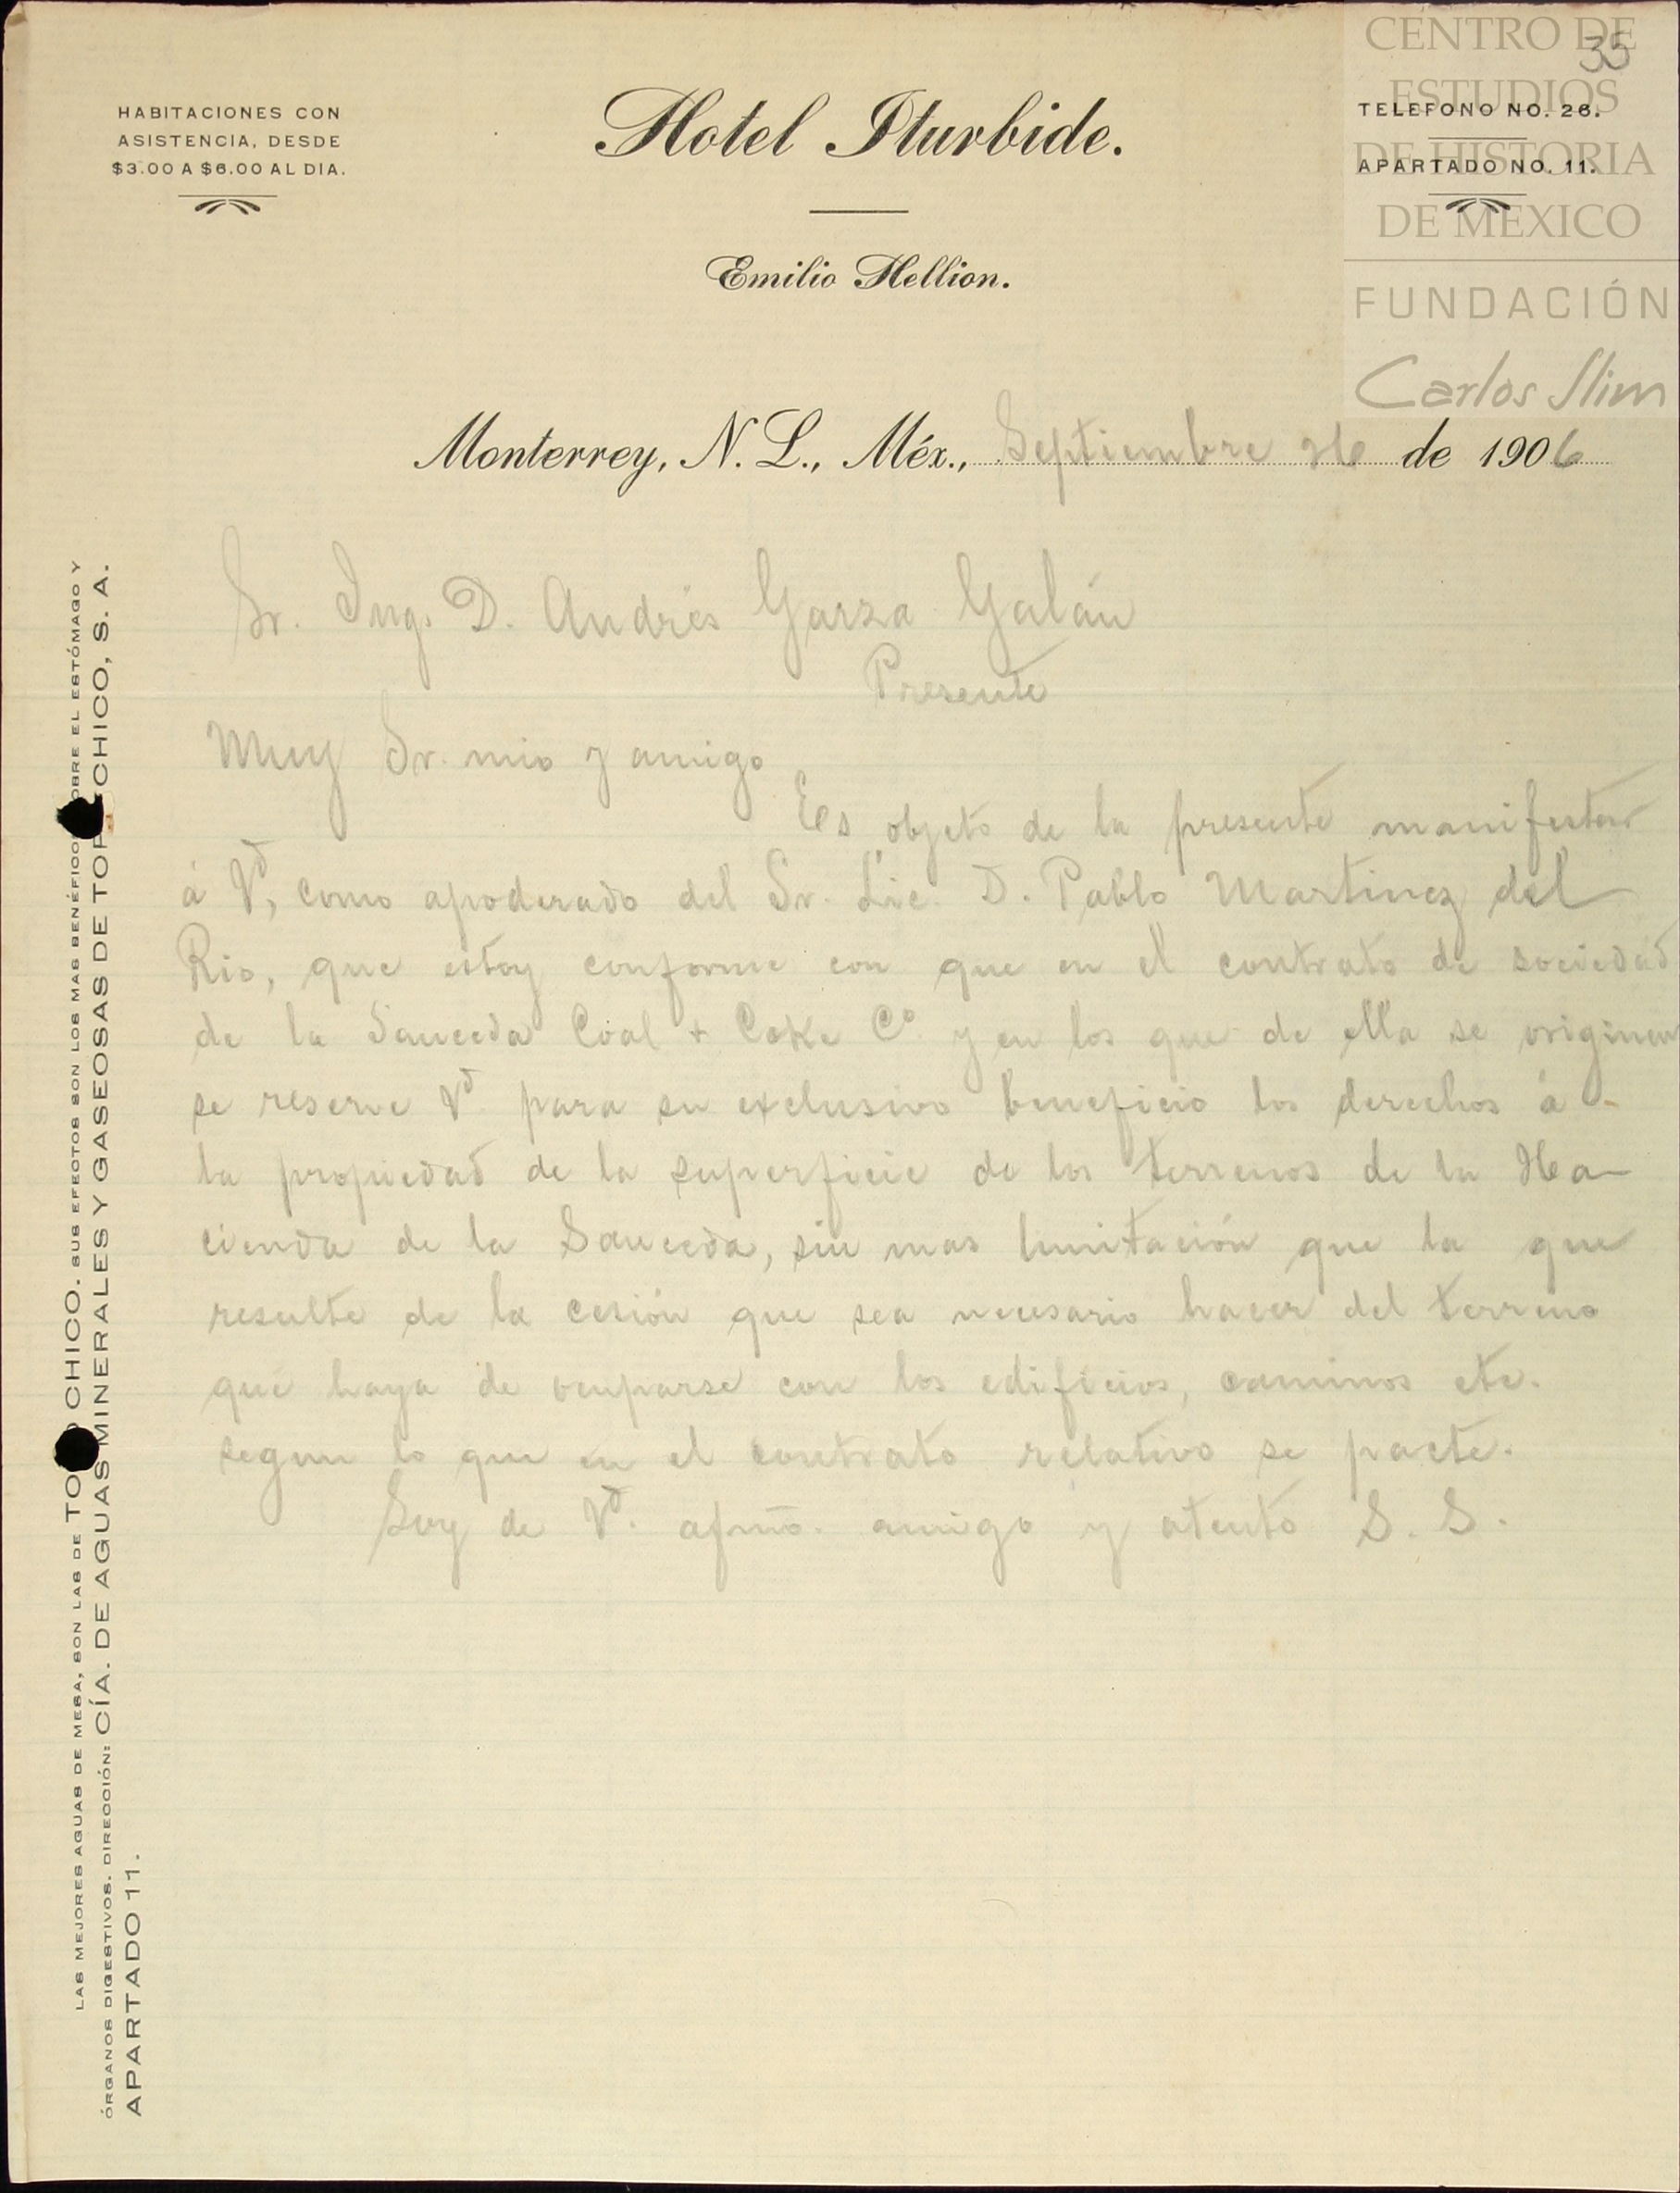 35
CENTRO DE
ESTUDIOS
DE HISTORIA
DE MEXICO
FUNDACIÓN
Carlos Slim
HABITACIONES CON
ASISTENCIA, DESDE
$3.00 A $6.00 AL DIA.
Hotel Iturbide.
Emilio Hellion.
TELEFONO NO. 26.
APARTADO NO. 11.
Monterrey, N. L., Méx., Septiembre 26 de 1906
Sr. Ing. D. Andrés Garza Galán
Presente
Muy Sr. mio y amigo
Es objeto de la presente manifestar
á Vd, como apoderado del Sr. Lic. D. Pablo Martinez del
Rio, que estoy conforme con que en el contrato de sociedad
de la Sauceda Coal + Coke Co. y en los que de ella se originen
se reserve Vd. para su exclusivo beneficio los derechos á -
la propiedad de la superficie de los terrenos de la Ha-
cienda de la Sauceda, sin mas limitación que la que
resulte de la cesión que sea necesario hacer del terreno
que haya de ocuparse con los edificios, caminos etc.
segun lo que en el contrato relativo se pacte.
Soy de Vd. afmo. amigo y atento S. S.
LAS MEJORES AGUAS DE MESA, SON LAS DE TOPO CHICO. SUS EFECTOS SON LOS MAS BENÉFICOS SOBRE EL ESTÓMAGO Y
ÓRGANOS DIGESTIVOS. DIRECCIÓN: CÍA. DE AGUAS MINERALES Y GASEOSAS DE TOPO CHICO, S. A.
APARTADO 11.